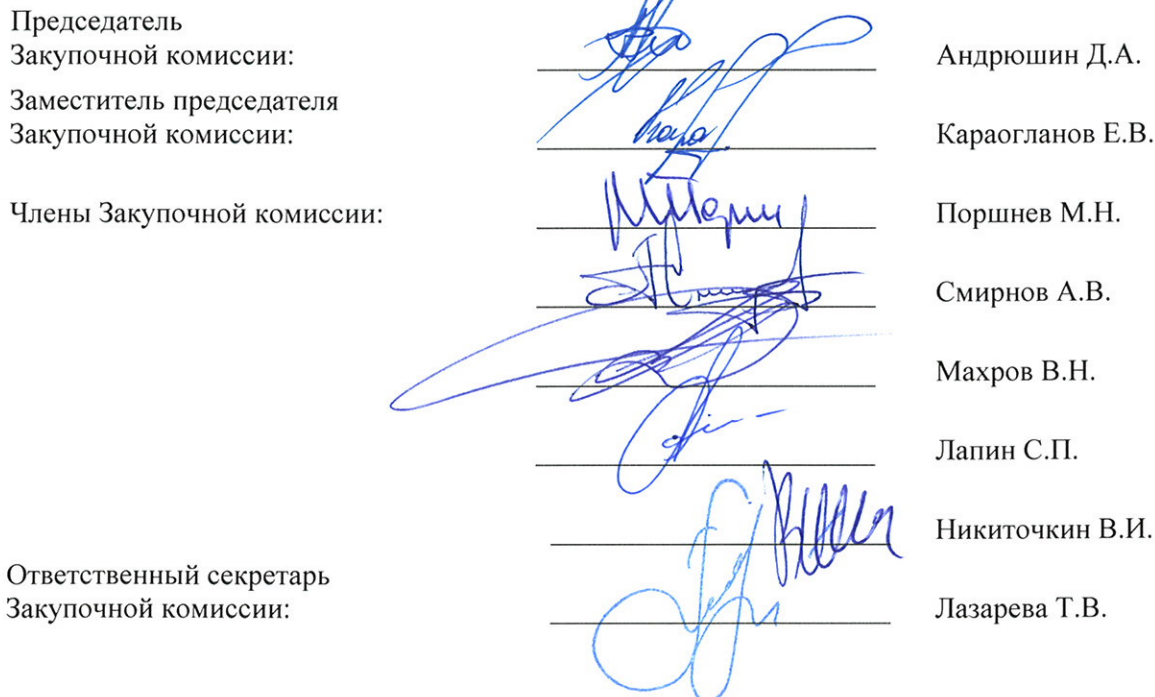 Председатель
Закупочной комиссии: Андрюшин Д.А.
Заместитель председателя
Закупочной комиссии: Караогланов Е.В.
Члены Закупочной комиссии: Поршнев М.Н.
Смирнов А.В.
Махров В.Н.
Лапин С.П.
Никиточкин В.И.
Ответственный секретарь
Закупочной комиссии: Лазарева Т.В.